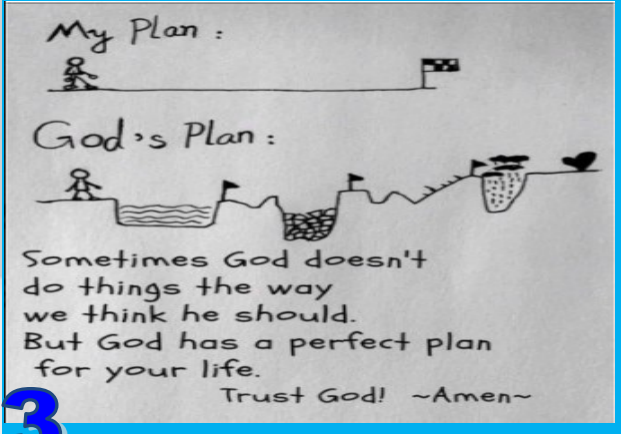 My Plan :
God's Plan :
Sometimes God doesn't
do things the way
we think he should.
But God has a perfect plan
for your life.
Trust God! ~Amen~
3